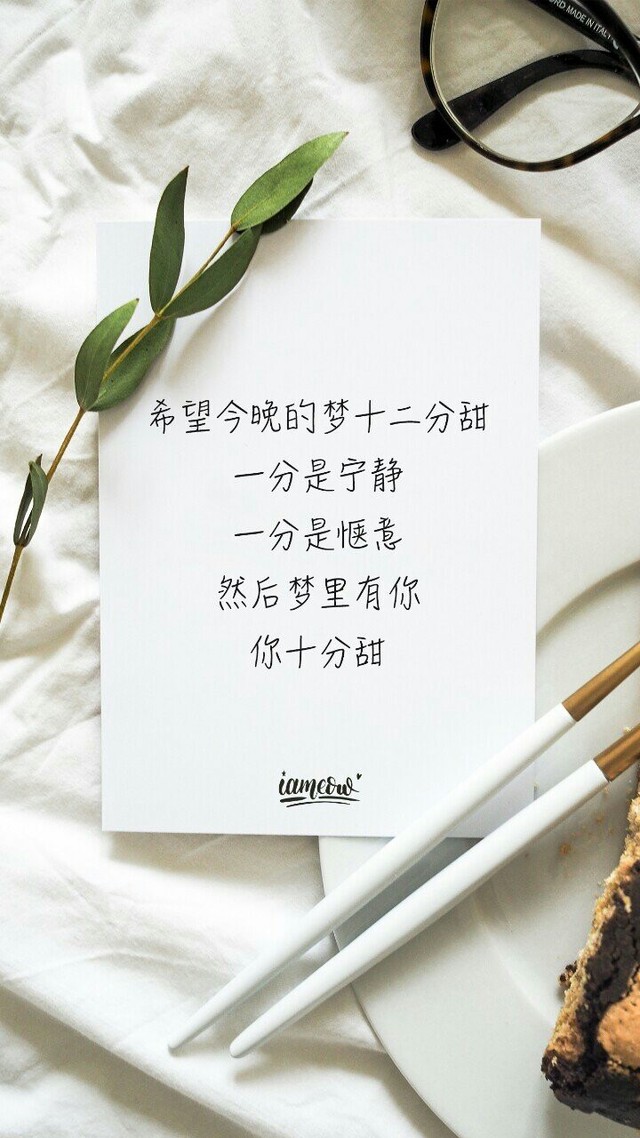 MADE IN ITALY
希望今晚的梦十二分甜
一分是宁静
一分是惬意
然后梦里有你
你十分甜
iameow